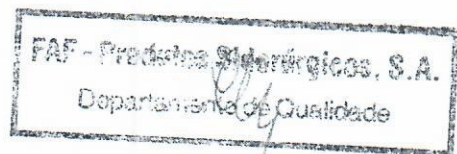 FAF - Produtos Siderúrgicos, S.A.
Departamento de Qualidade